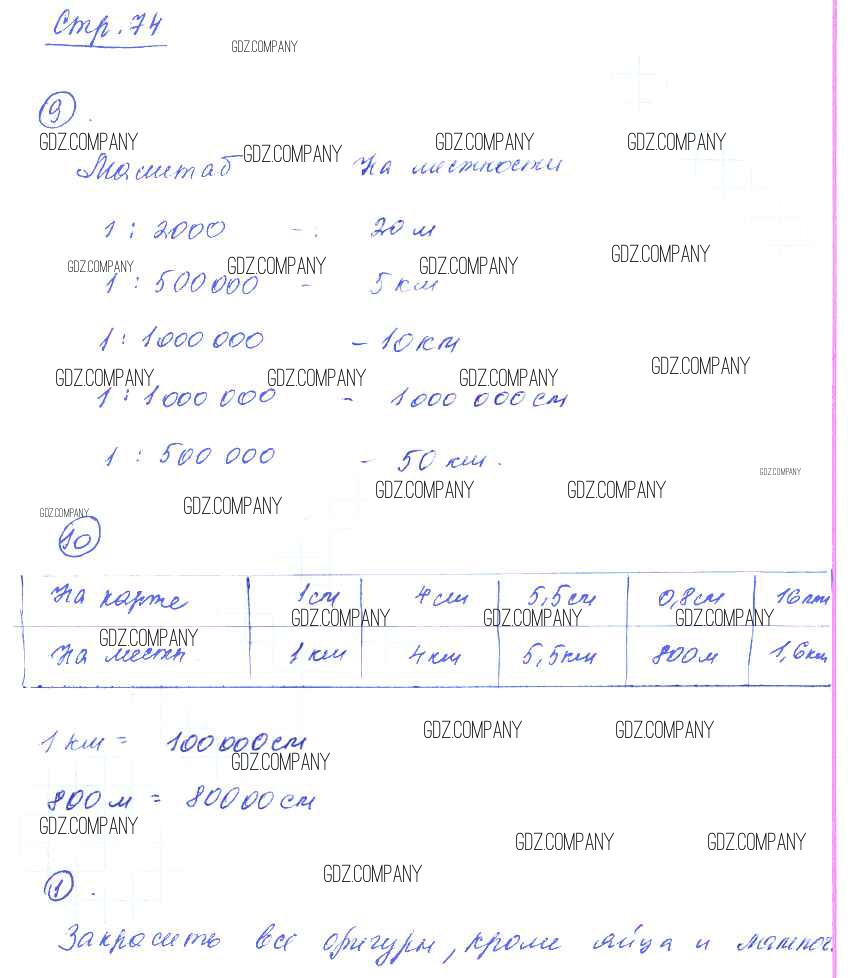 Стр. 74
GDZ.COMPANY
9.
GDZ.COMPANY GDZ.COMPANY GDZ.COMPANY GDZ.COMPANY
Масштаб На местности
1 : 2000 - : 20 м
GDZ.COMPANY GDZ.COMPANY GDZ.COMPANY GDZ.COMPANY
1 : 500 000 - 5 км
1 : 1000 000 - 10 км
GDZ.COMPANY GDZ.COMPANY GDZ.COMPANY GDZ.COMPANY
1 : 1 000 000 - 1 000 000 см
1 : 500 000 - 50 км.
GDZ.COMPANY GDZ.COMPANY GDZ.COMPANY GDZ.COMPANY GDZ.COMPANY
10
На карте 1 см 4 см 5,5 см 0,8 см 16 мм
GDZ.COMPANY GDZ.COMPANY GDZ.COMPANY GDZ.COMPANY
На местн 1 км 4 км 5,5 км 800 м 1,6 км
GDZ.COMPANY GDZ.COMPANY
1 км = 100 000 см
GDZ.COMPANY
800 м = 80000 см
GDZ.COMPANY GDZ.COMPANY GDZ.COMPANY
GDZ.COMPANY
1.
Закрасить все фигуры, кроме яйца и